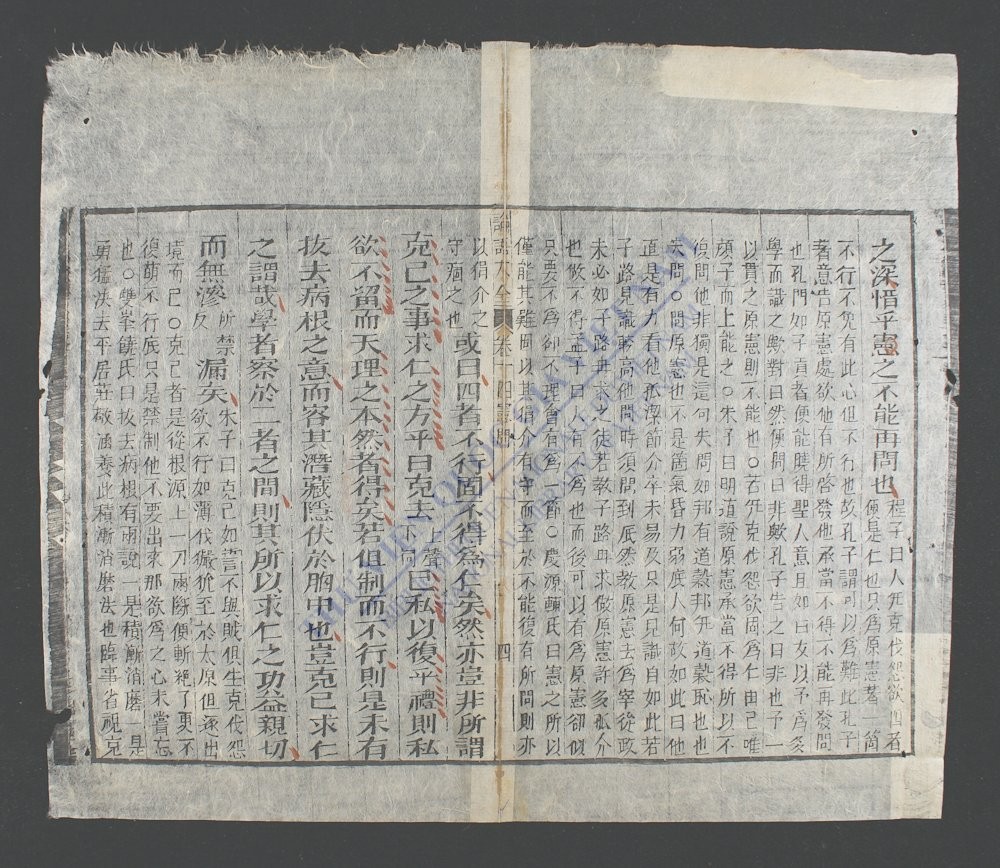 之深惜乎憲之不能再問也 程子曰人无克伐怨欲四者
便是仁也只為原憲著一箇
不行不免有此心但不行也故孔子謂可以為難此孔子
著意告原憲處欲他有所啓發他承當不得不能再發問
也孔門如子貢者便能曉得聖人意且如曰女以予為多
學而識之歟對曰然便問曰非歟孔子告之曰非也予一
以貫之原憲則不能也○若无克伐怨欲固為仁由己唯
顔子而上能之○朱子曰明道說原憲承當不得所以不
復問他非獨是這句失問如邦有道穀邦无道穀恥也也
失問○問原憲也不是箇氣昏力弱底人何故如此曰他
直是有力看他孤潔節介卒未易及只是見識自如此若
子路見識較高他問時須問到底然教原憲去為宰從政
未必如子路冉求之徒若教子路冉求做原憲許多孤介
也做不得孟子曰人有不為也而後可以有為原憲卻似
只要不為卻不理會有為一節○慶源輔氏曰憲之所以
僅能其難固以其狷介有守而至於不能復有所問則亦
論語大全 卷十四憲問 四
以狷介之
守痼之也
或曰四者不行固不得為仁矣然亦豈非所謂
克己之事求仁之方乎曰克去上聲己私以復乎禮則私
欲不留而天理之本然者得矣若但制而不行則是未有
拔去病根之意而容其潛藏隱伏於胸中也豈克己求仁
之謂哉學者察於二者之間則其所以求仁之功益親切
而無滲所禁反漏矣 朱子曰克己如誓不與賊俱生克伐怨
欲不行如薄伐玁狁至于太原但逐出
境而已○克己者是從根源上一刀兩斷便斬絕了更不
復萌不行底只是禁制他不要出來那欲為之心未嘗忘
也○雙峯饒氏曰拔去病根有兩說一是積漸消磨一是
勇猛決去平居莊敬涵養此積漸消磨法也臨事省視克